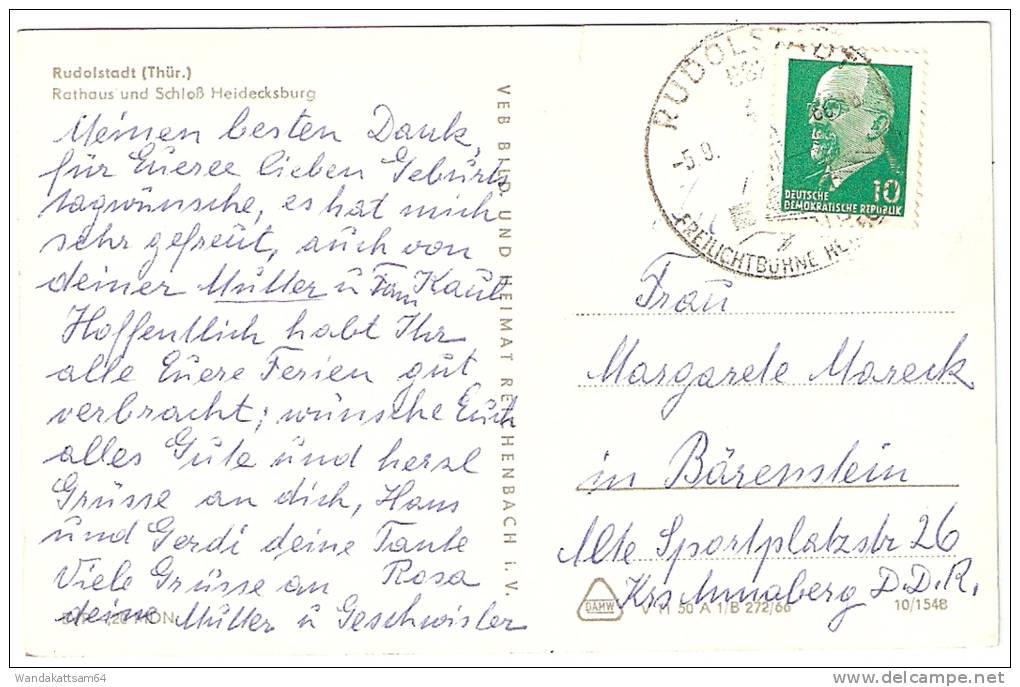 Rudolstadt (Thür.)
Rathaus und Schloß Heidecksburg
Meinen besten Dank,
für Euere lieben Geburts
tagwünsche, es hat mich
sehr gefreut, auch von
deiner Mutter u Fam Kaul
Hoffentlich habt Ihr
alle Euere Ferien gut
verbracht; wünsche Euch
alles Gute und herzl
Grüsse an dich, Hans
und Gerdi deine Tante
Rosa
Viele Grüsse an
deine Mutter u Geschwister
VEB BILD UND HEIMAT REICHENBACH i. V.
RUDOLSTADT
5.9.
FREILICHTBÜHNE
DEUTSCHE
DEMOKRATISCHE REPUBLIK
10
Frau
Margarete Mareck
in Bärenstein
Alte Sportplatzstr 26
Krs Annaberg D.D.R.
DAMW
V 11 50 A 1/B 272/66
10/1548
Wandakattsam64
delcampe.net